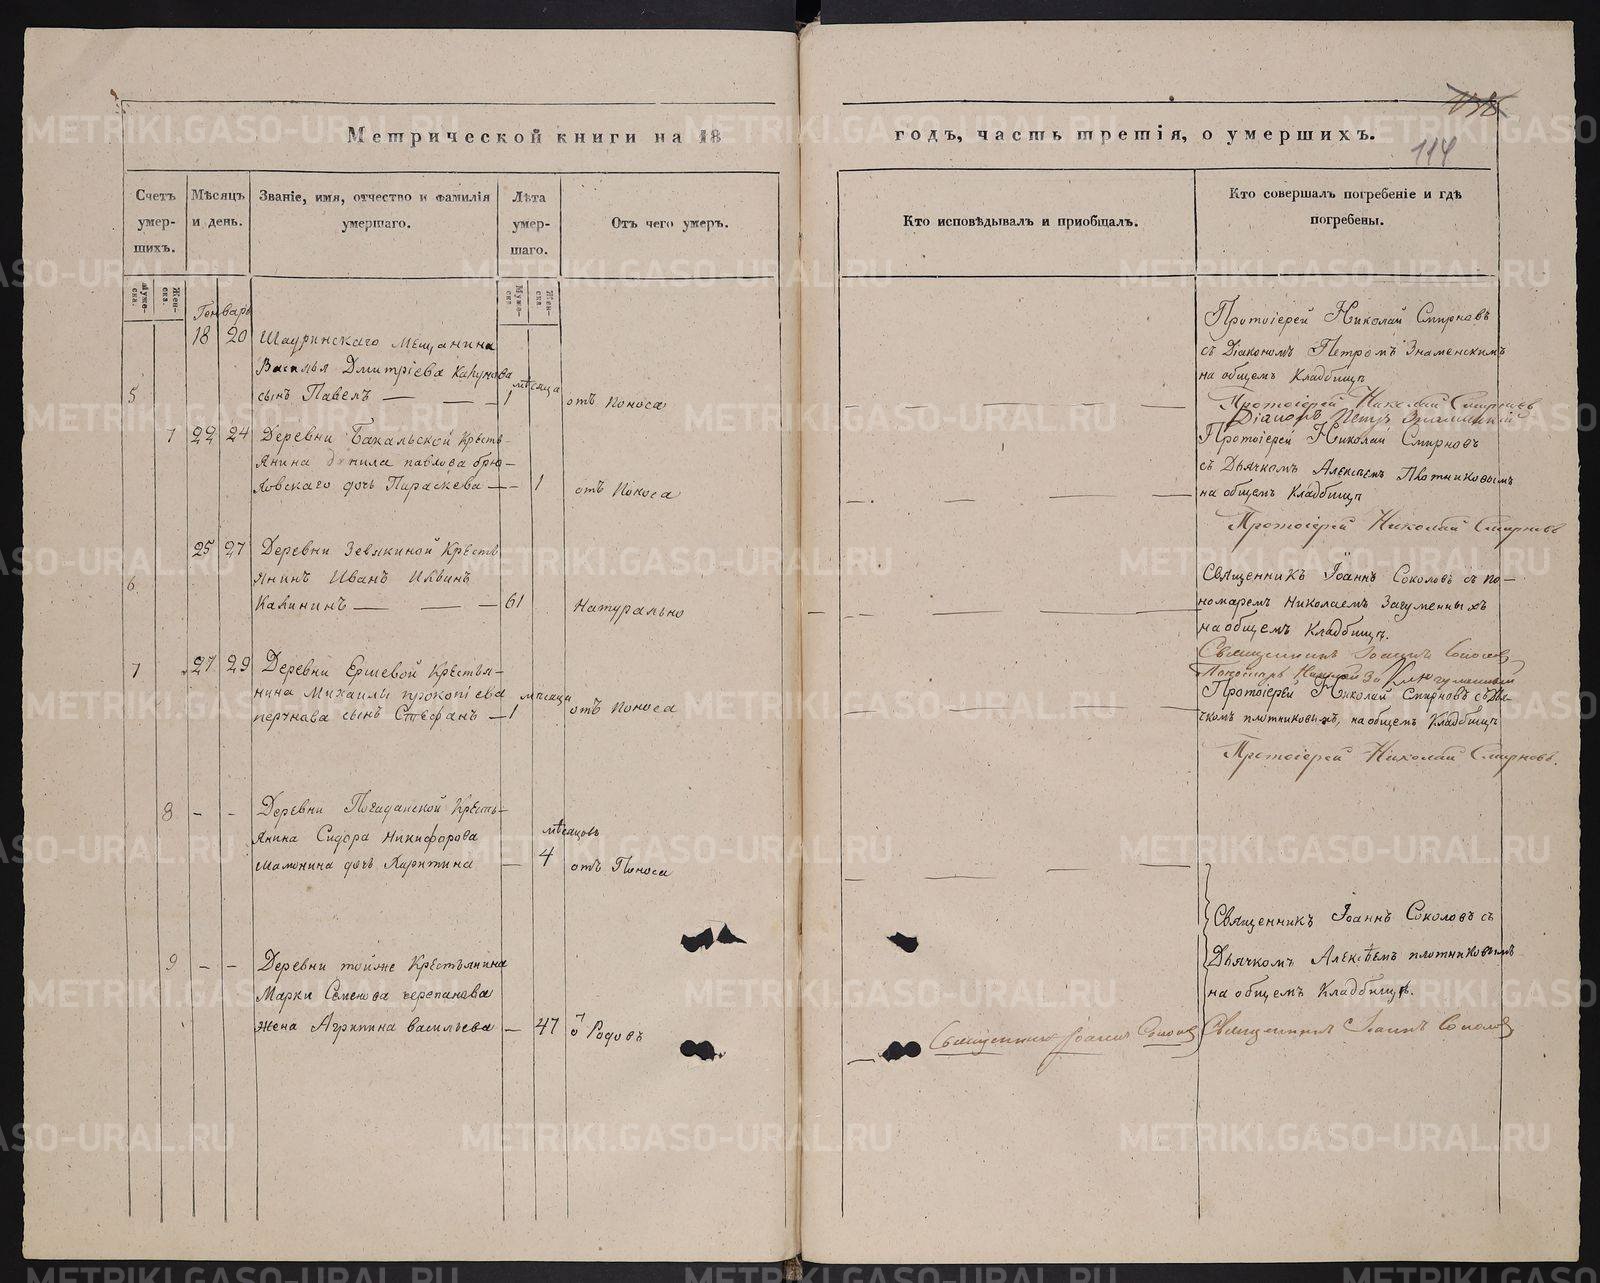 Метрической книги на 18
годъ, часть третія, о умершихъ.
114
Счетъ умер-шихъ.
Мѣсяцъ и день.
Званіе, имя, отчество и фамилія умершаго.
Лѣта умер-шаго.
Отъ чего умеръ.
Кто исповѣдывалъ и приобщалъ.
Кто совершалъ погребеніе и гдѣ погребены.
Муже-ска.
Жен-ска.
Муже-ска
Жен-ска
Генварь
18 20 Шадринскаго Мещанина
Василья Дмитріева
мѣсяца
5 сынъ Павелъ — — — 1 отъ Поноса
Протоіерей Николай Смирновъ
съ Діакономъ Петромъ Знаменскимъ
на общемъ Кладбищѣ
Протоіерей Николай Смирновъ
Діаконъ Петръ Знаменскій
7 22 24 Деревни Бакальской Кресть-
янина Данила павлова брю-
ховскаго дочь Параскева — — 1 отъ Поноса
Протоіерей Николай Смирновъ
съ Дьячкомъ Алексѣемъ Плотниковымъ
на общемъ Кладбищѣ
Протоіерей Николай Смирновъ
25 27 Деревни Зевякиной Кресть
6 янинъ Иванъ
Калининъ — — — 61 Натурально
Священникъ Іоаннъ Соколовъ съ по-
номаремъ Николаемъ Загуменныхъ
на общемъ Кладбищѣ.
Священникъ Іоаннъ Соколовъ
7 27 29 Деревни Ершевой Крестья-
нина Михаилы прокопіева
мѣсяца
сынъ Стефанъ — 1 отъ Поноса
Протоіерей Николай Смирновъ съ Дья-
чкомъ плотниковымъ, на общемъ Кладбищѣ
Протоіерей Николай Смирновъ.
8 - - Деревни Погадайской Кресть-
янина Сидора Никифорова
мѣсяцовъ
Мамонина дочь Харитина — 4 отъ Поноса
9 - - Деревни тойже Крестьянина
Марки Семенова черепанова
жена Агрипина васильева — 47 Родовъ
Священникъ Іоаннъ Соколовъ
Священникъ Іоаннъ Соколовъ съ
Дьячкомъ Алексѣемъ плотниковымъ
на общемъ Кладбищѣ.
Священникъ Іоаннъ Соколовъ
METRIKI.GASO-URAL.RU